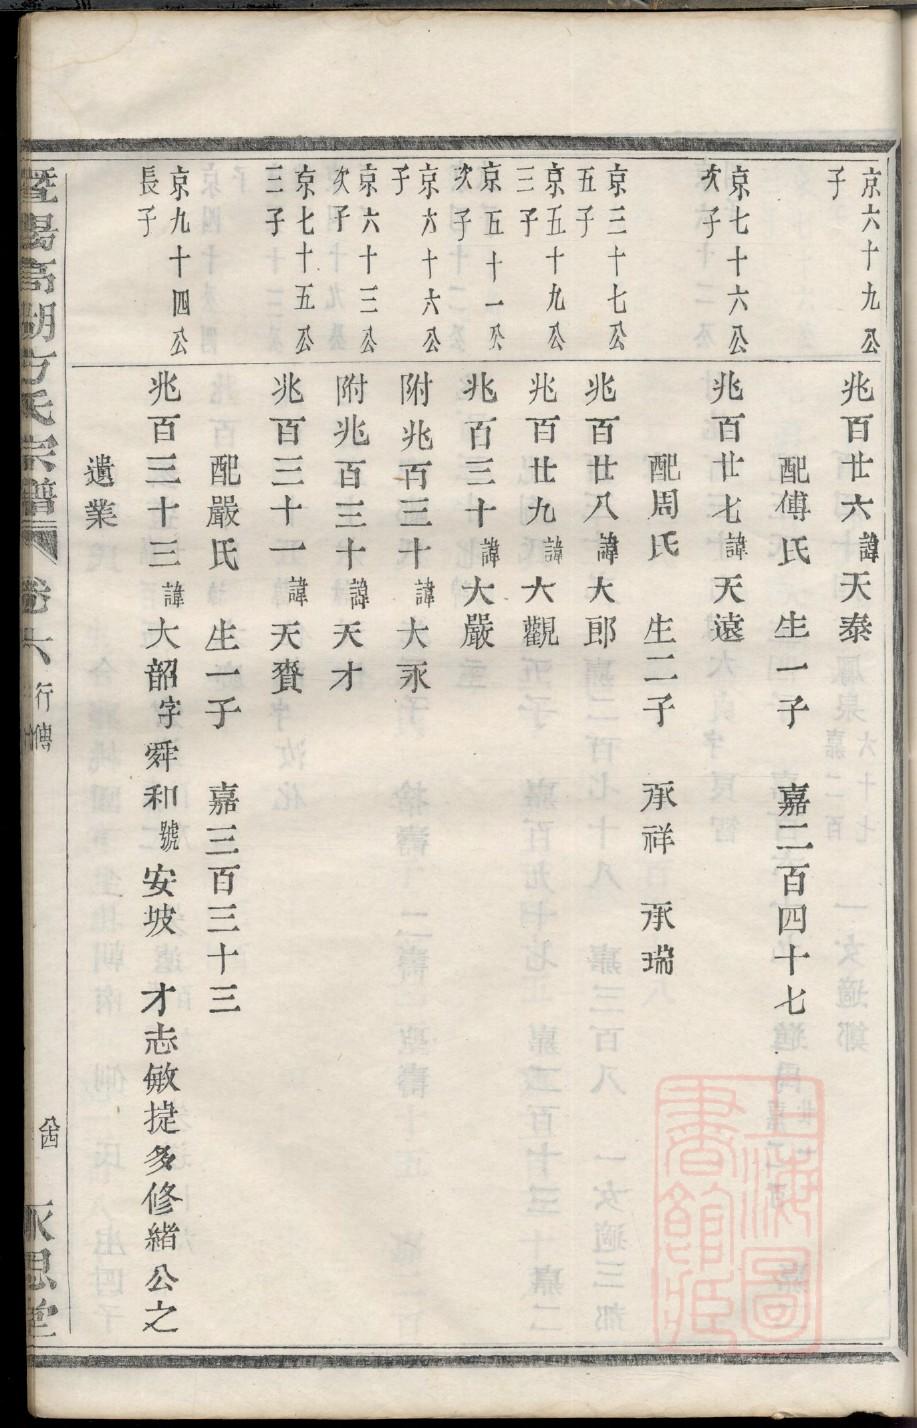 京六十九公
子
兆百廿六諱天泰
配傅氏 生一子 嘉二百四十七
京七十六公
次子
兆百廿七諱天遠
配周氏 生二子 承祥 承瑞
京三十七公
五子
兆百廿八諱大郎
京五十九公
三子
兆百廿九諱大觀
京五十一公
次子
兆百三十諱大嚴
京六十六公
子
附兆百三十諱大永
京六十三公
次子
附兆百三十諱天才
京七十五公
三子
兆百三十一諱天賚
配嚴氏 生一子 嘉三百三十三
京九十四公
長子
兆百三十三諱大韶字舜和號安坡 才志敏捷多修緒公之
遺業
暨陽高湖方氏宗譜 卷六 行傳 永思堂
上海圖
書館藏